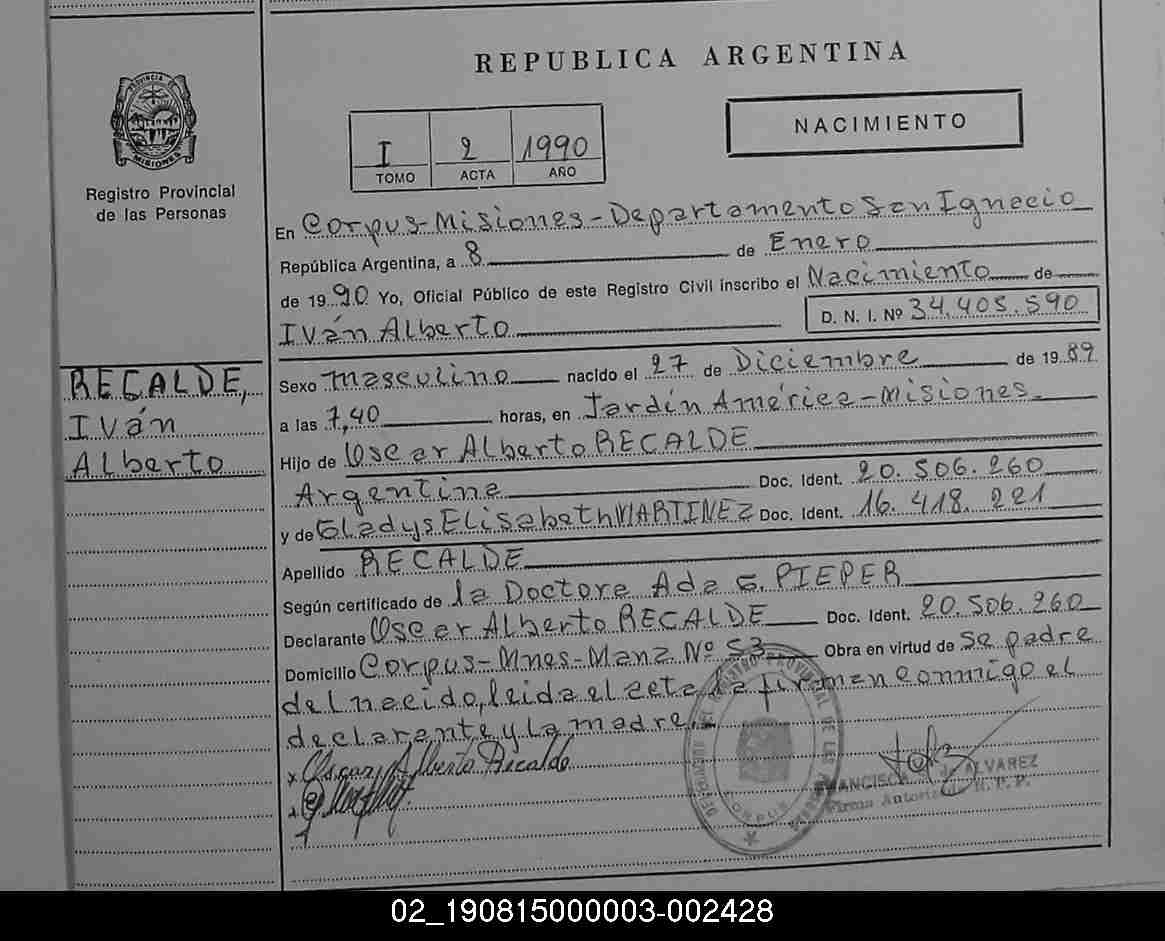 REPUBLICA ARGENTINA
PROVINCIA DE
MISIONES
Registro Provincial
de las Personas
I 2 1990
TOMO ACTA AÑO
NACIMIENTO
En Corpus-Misiones-Departamento San Ignacio
República Argentina, a 8 de Enero
de 1990 Yo, Oficial Público de este Registro Civil inscribo el Nacimiento de
Iván Alberto D. N. I. Nº 34.405.590
RECALDE,
Iván
Alberto
Sexo masculino nacido el 27 de Diciembre de 1989
a las 7,40 horas, en Jardín América-Misiones.
Hijo de Oscar Alberto RECALDE
Argentina Doc. Ident. 20.506.260
y de Gladys Elisabeth MARTINEZ Doc. Ident. 16.418.221
Apellido RECALDE
Según certificado de la Doctora Ada G. PIEPER
Declarante Oscar Alberto RECALDE Doc. Ident. 20.506.260
Domicilio Corpus-Mnes-Manz Nº 53 Obra en virtud de se padre
del nacido, leida el acta la firman conmigo el
declarante y la madre.
x Oscar Alberto Recalde
REGISTRO PROVINCIAL DE LAS
CORPUS
FRANCISCA de ALVAREZ
Firma R. P. P.
02_190815000003-002428